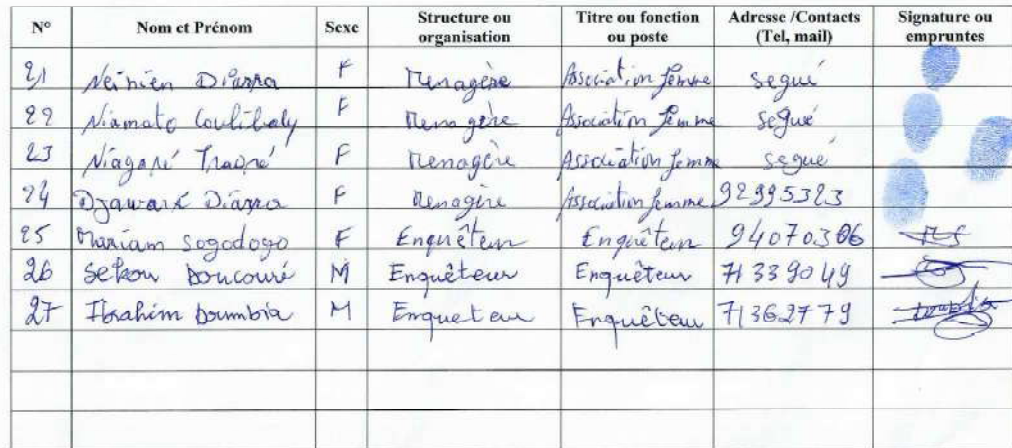 N° Nom et Prénom Sexe Structure ou organisation Titre ou fonction ou poste Adresse /Contacts (Tel, mail) Signature ou empruntes
21 Neinien Diarra F Menagère Association femme segué
22 Niamato Coulibaly F Menagère Association femme segué
23 Niagaré Traoré F Menagère Association femme segué
24 Djawaré Diarra F Menagère Association femme 92995323
25 Mariam Sogodogo F Enquêteur Enquêteur 94070306
26 Sekou Doucouré M Enquêteur Enquêteur 71339049
27 Ibrahim Doumbia M Enqueteur Enquêteur 71362779